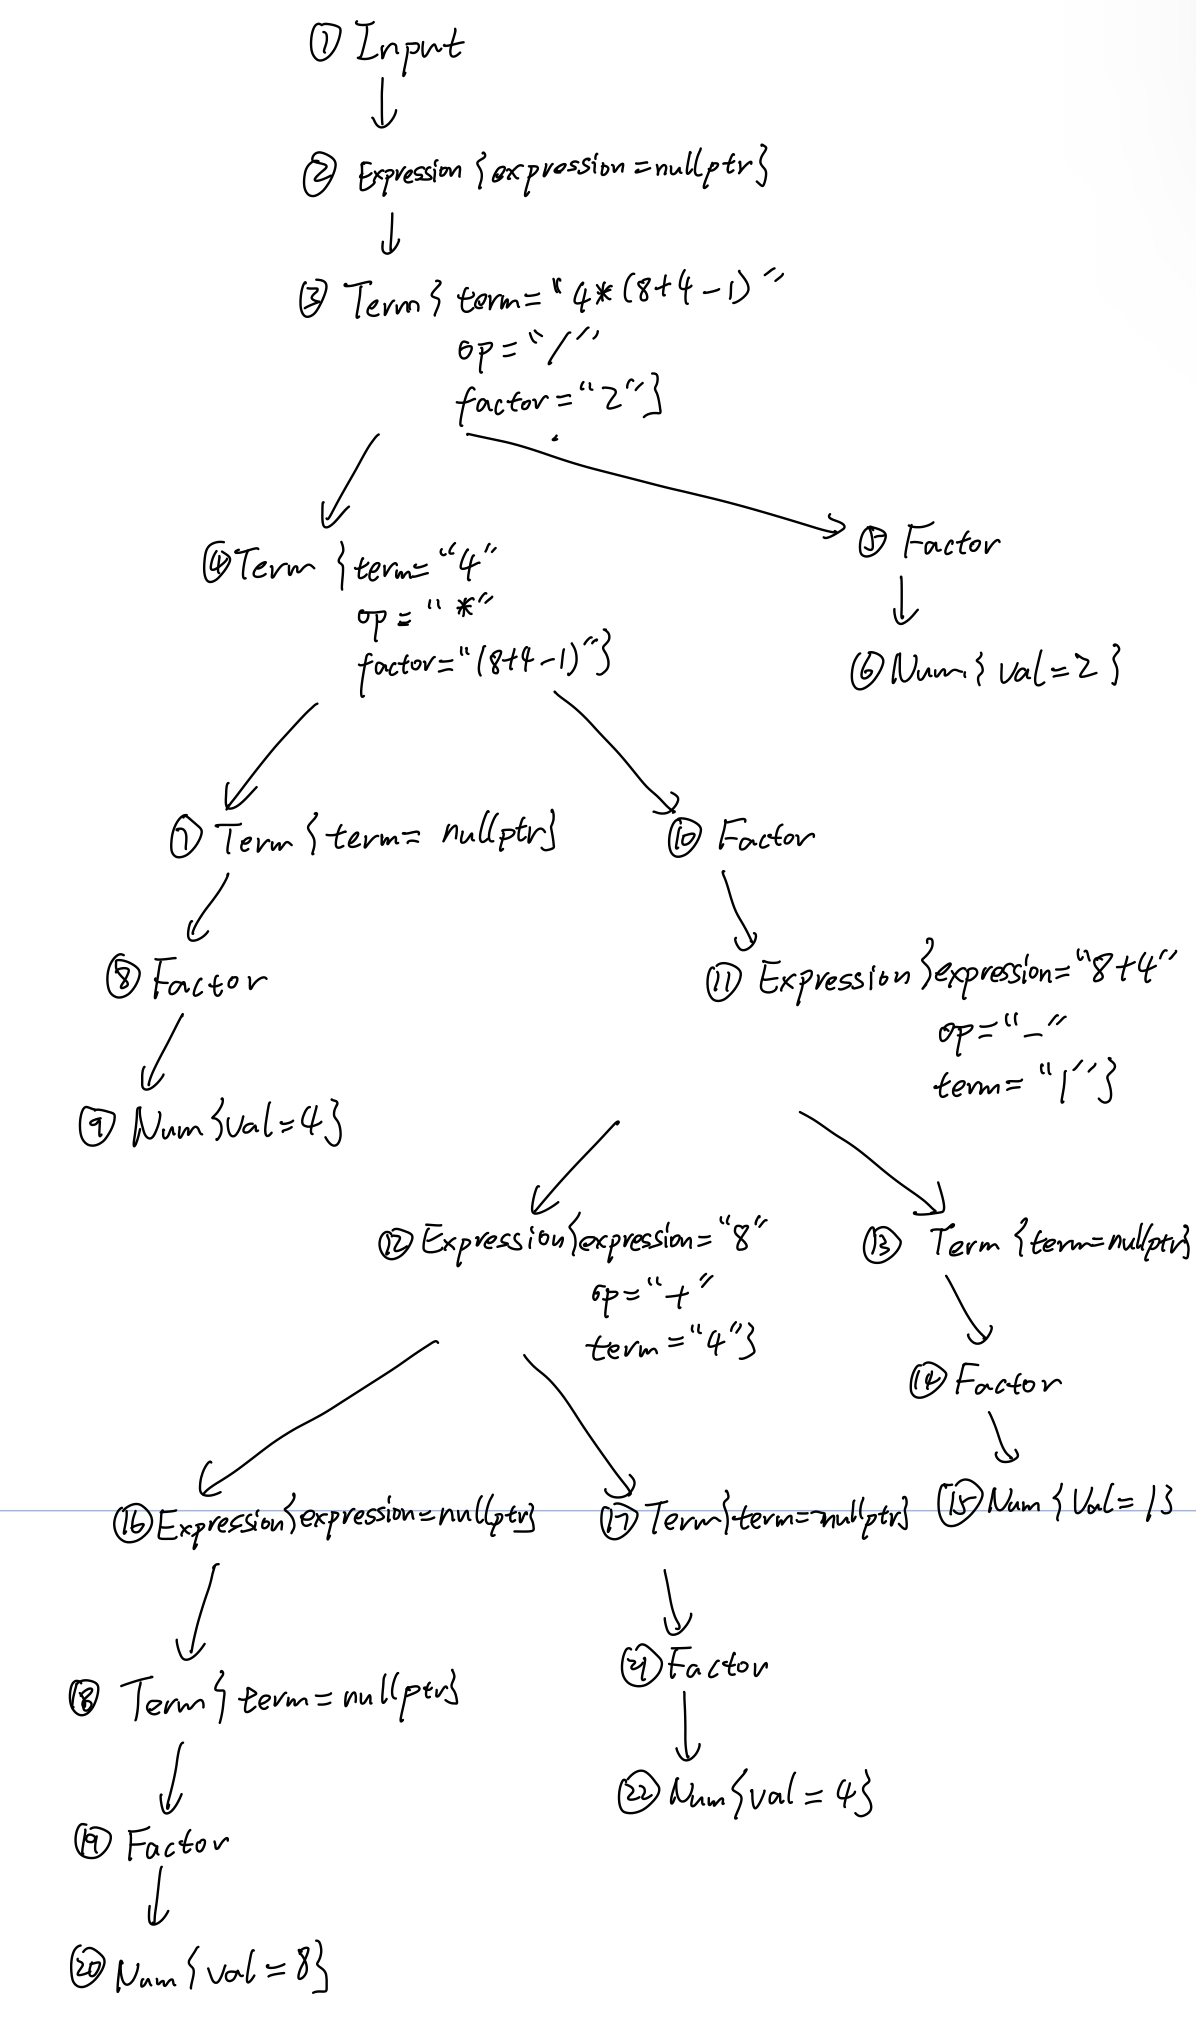 ① Input
② Expression {expression=nullptr}
③ Term { term="4*(8+4-1)"
op="/"
factor="2"}
④ Term {term="4"
op="*"
factor="(8+4-1)"}
⑤ Factor
⑥ Num{ val=2 }
⑦ Term {term= nullptr}
⑩ Factor
⑧ Factor
⑪ Expression {expression="8+4"
op="-"
term="1"}
⑨ Num{val=4}
⑫ Expression{expression="8"
op="+"
term="4"}
⑬ Term {term=nullptr}
⑭ Factor
⑮ Num {Val=1}
⑯ Expression{expression=nullptr}
⑰ Term{term=nullptr}
㉑ Factor
⑱ Term{ term=nullptr}
㉒ Num{val=4}
⑲ Factor
⑳ Num{val=8}